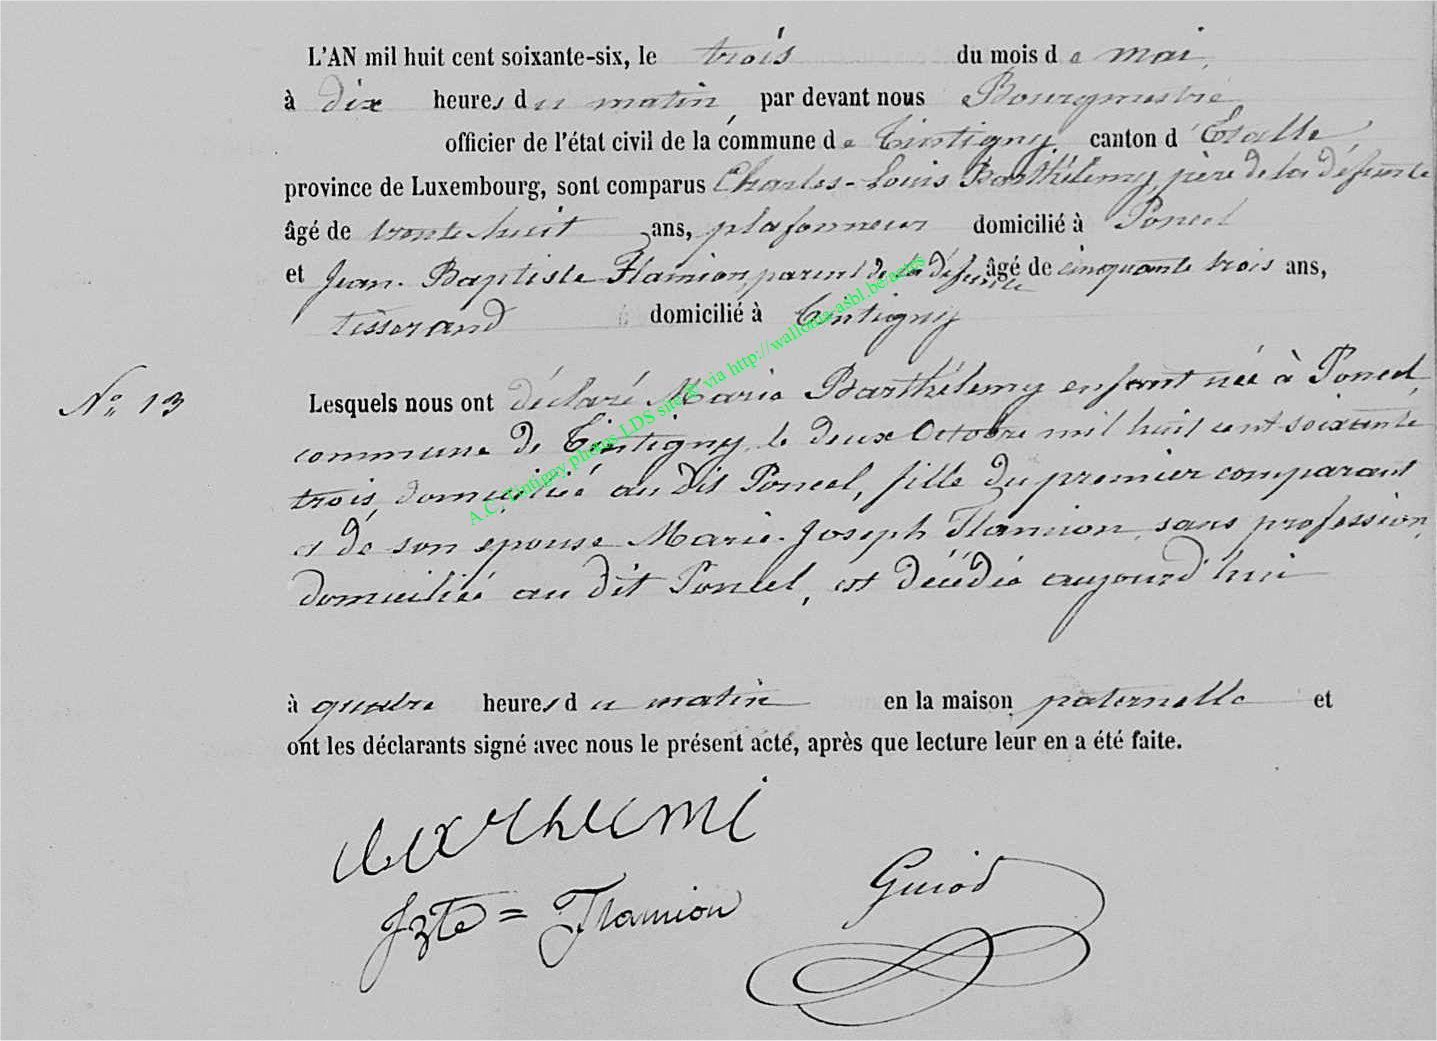 L'AN mil huit cent soixante-six, le trois du mois de mai,
à dix heures du matin, par devant nous Bourgmestre
officier de l'état civil de la commune de Tintigny canton d'Etalle
province de Luxembourg, sont comparus Charles-Louis Barthélemy, père de la défunte
âgé de trente huit ans, plafonneur domicilié à Poncel
et Jean-Baptiste Flamion, parent de la défunte âgé de cinquante trois ans,
tisserand domicilié à Tintigny
N° 13 Lesquels nous ont déclaré Marie Barthélemy enfant née à Poncel,
commune de Tintigny, le deux Octobre mil huit cent soixante
trois, domiciliée au dit Poncel, fille du premier comparant
et de son épouse Marie-Joseph Flamion, sans profession,
domiciliée au dit Poncel, est décédée aujourd'hui
à quatre heures du matin en la maison paternelle et
ont les déclarants signé avec nous le présent acte, après que lecture leur en a été faite.
Flamion
Guiod
A.C. Tintigny photos LDS site & via http://wallonia-asbl.be/actes